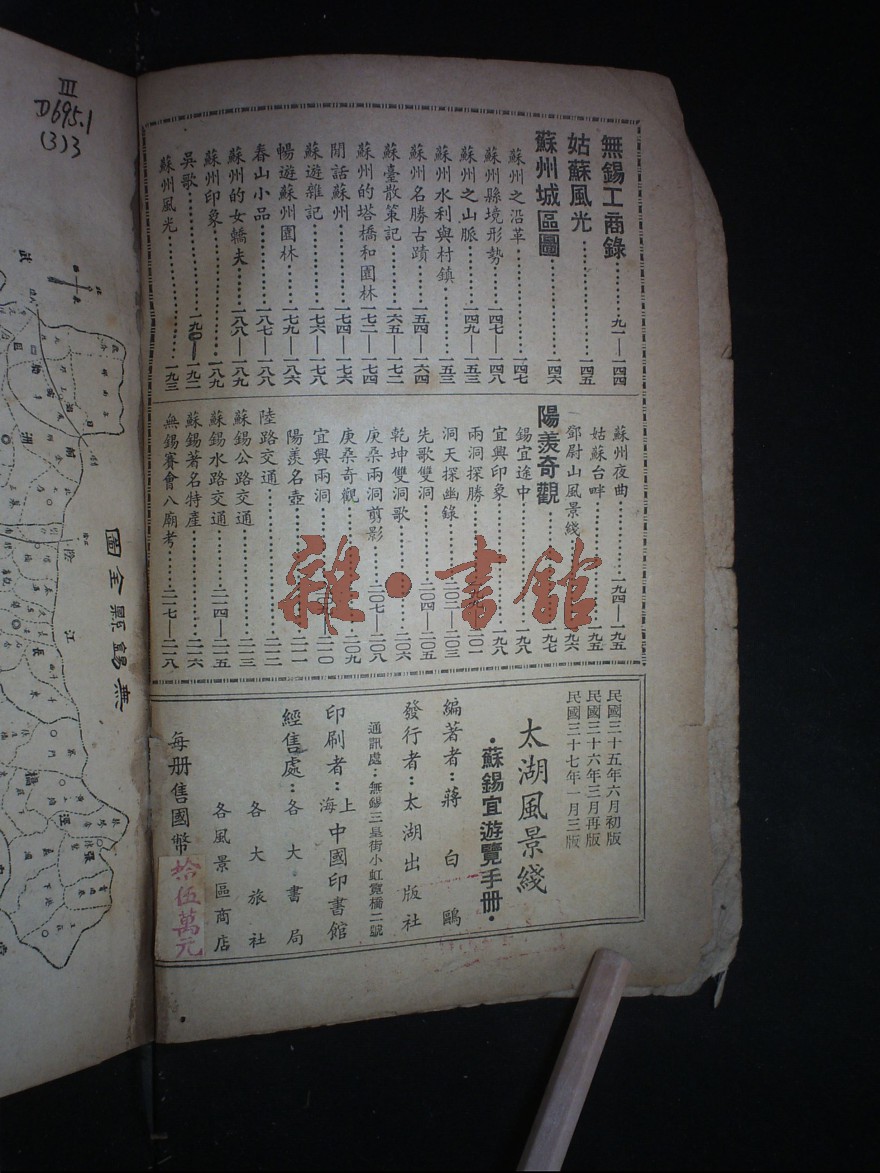 III
D695.1
(3)3
無錫工商錄⋯⋯九一—一四四
姑蘇風光⋯⋯一四五
蘇州城區圖⋯⋯一四六
蘇州之沿革⋯⋯一四七
蘇州縣境形勢⋯⋯一四七—一四八
蘇州之山脈⋯⋯一四九—一五三
蘇州水利與村鎮⋯⋯一五三
蘇州名勝古蹟⋯⋯一五四—一六四
蘇臺散策記⋯⋯一六五—一七二
蘇州的塔橋和園林⋯⋯一七二—一七四
閒話蘇州⋯⋯一七四—一七六
蘇遊雜記⋯⋯一七六—一七八
暢遊蘇州園林⋯⋯一七九—一八六
春山小品⋯⋯一八七—一八八
蘇州的女轎夫⋯⋯一八八—一八九
蘇州印象⋯⋯一八九
吳歌⋯⋯一九〇—一九二
蘇州風光⋯⋯一九三
蘇州夜曲⋯⋯一九四—一九五
姑蘇台畔⋯⋯一九五
鄧尉山風景綫⋯⋯一九六
陽羨奇觀⋯⋯一九七
錫宜途中⋯⋯一九八
宜興印象⋯⋯一九八
兩洞探勝⋯⋯二〇一
洞天探幽錄⋯⋯二〇二—二〇三
先歌雙洞⋯⋯二〇四—二〇五
乾坤雙洞歌⋯⋯二〇六
庚桑兩洞剪影⋯⋯二〇七—二〇八
庚桑奇觀⋯⋯二〇九
宜興兩洞⋯⋯二一〇
陽羨名壺⋯⋯二一一
陸路交通⋯⋯二一二
蘇錫公路交通⋯⋯二一三
蘇錫水路交通⋯⋯二一四—二一五
蘇錫著名特產⋯⋯二一六
無錫賽會八廟考⋯⋯二一七—二一八
民國三十五年六月初版
民國三十六年三月再版
民國三十七年一月三版
太湖風景綫
·蘇錫宜遊覽手冊·
編著者：蔣白鷗
發行者：太湖出版社
通訊處：無錫三皇街小虹霓橋二號
印刷者：上海中國印書館
經售處：各大書局
各大旅社
各風景區商店
每册售國幣拾伍萬元
雜·書館
無錫縣全圖